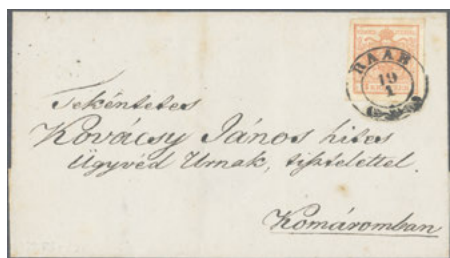 RAAB
19
1
Tekéntetes
Kovácsy János hites
Ügyvéd Urnak, tisztelettel
Komáromban